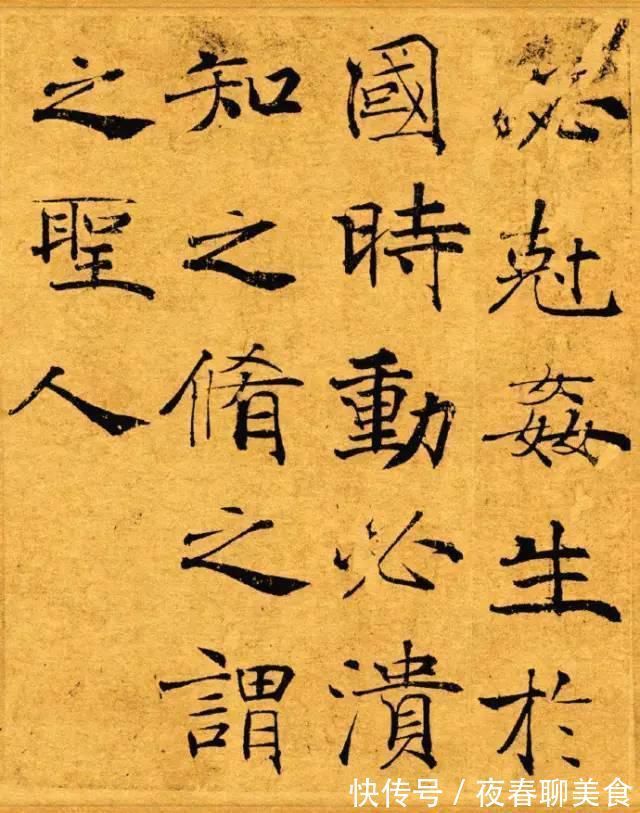 必剋姦生於
國時動必潰
知之脩之謂
之聖人
快传号/夜春聊美食